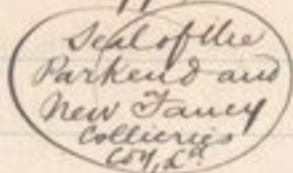 Seal of the
Parkend and
New Fancy
Collieries
Coy, Ld